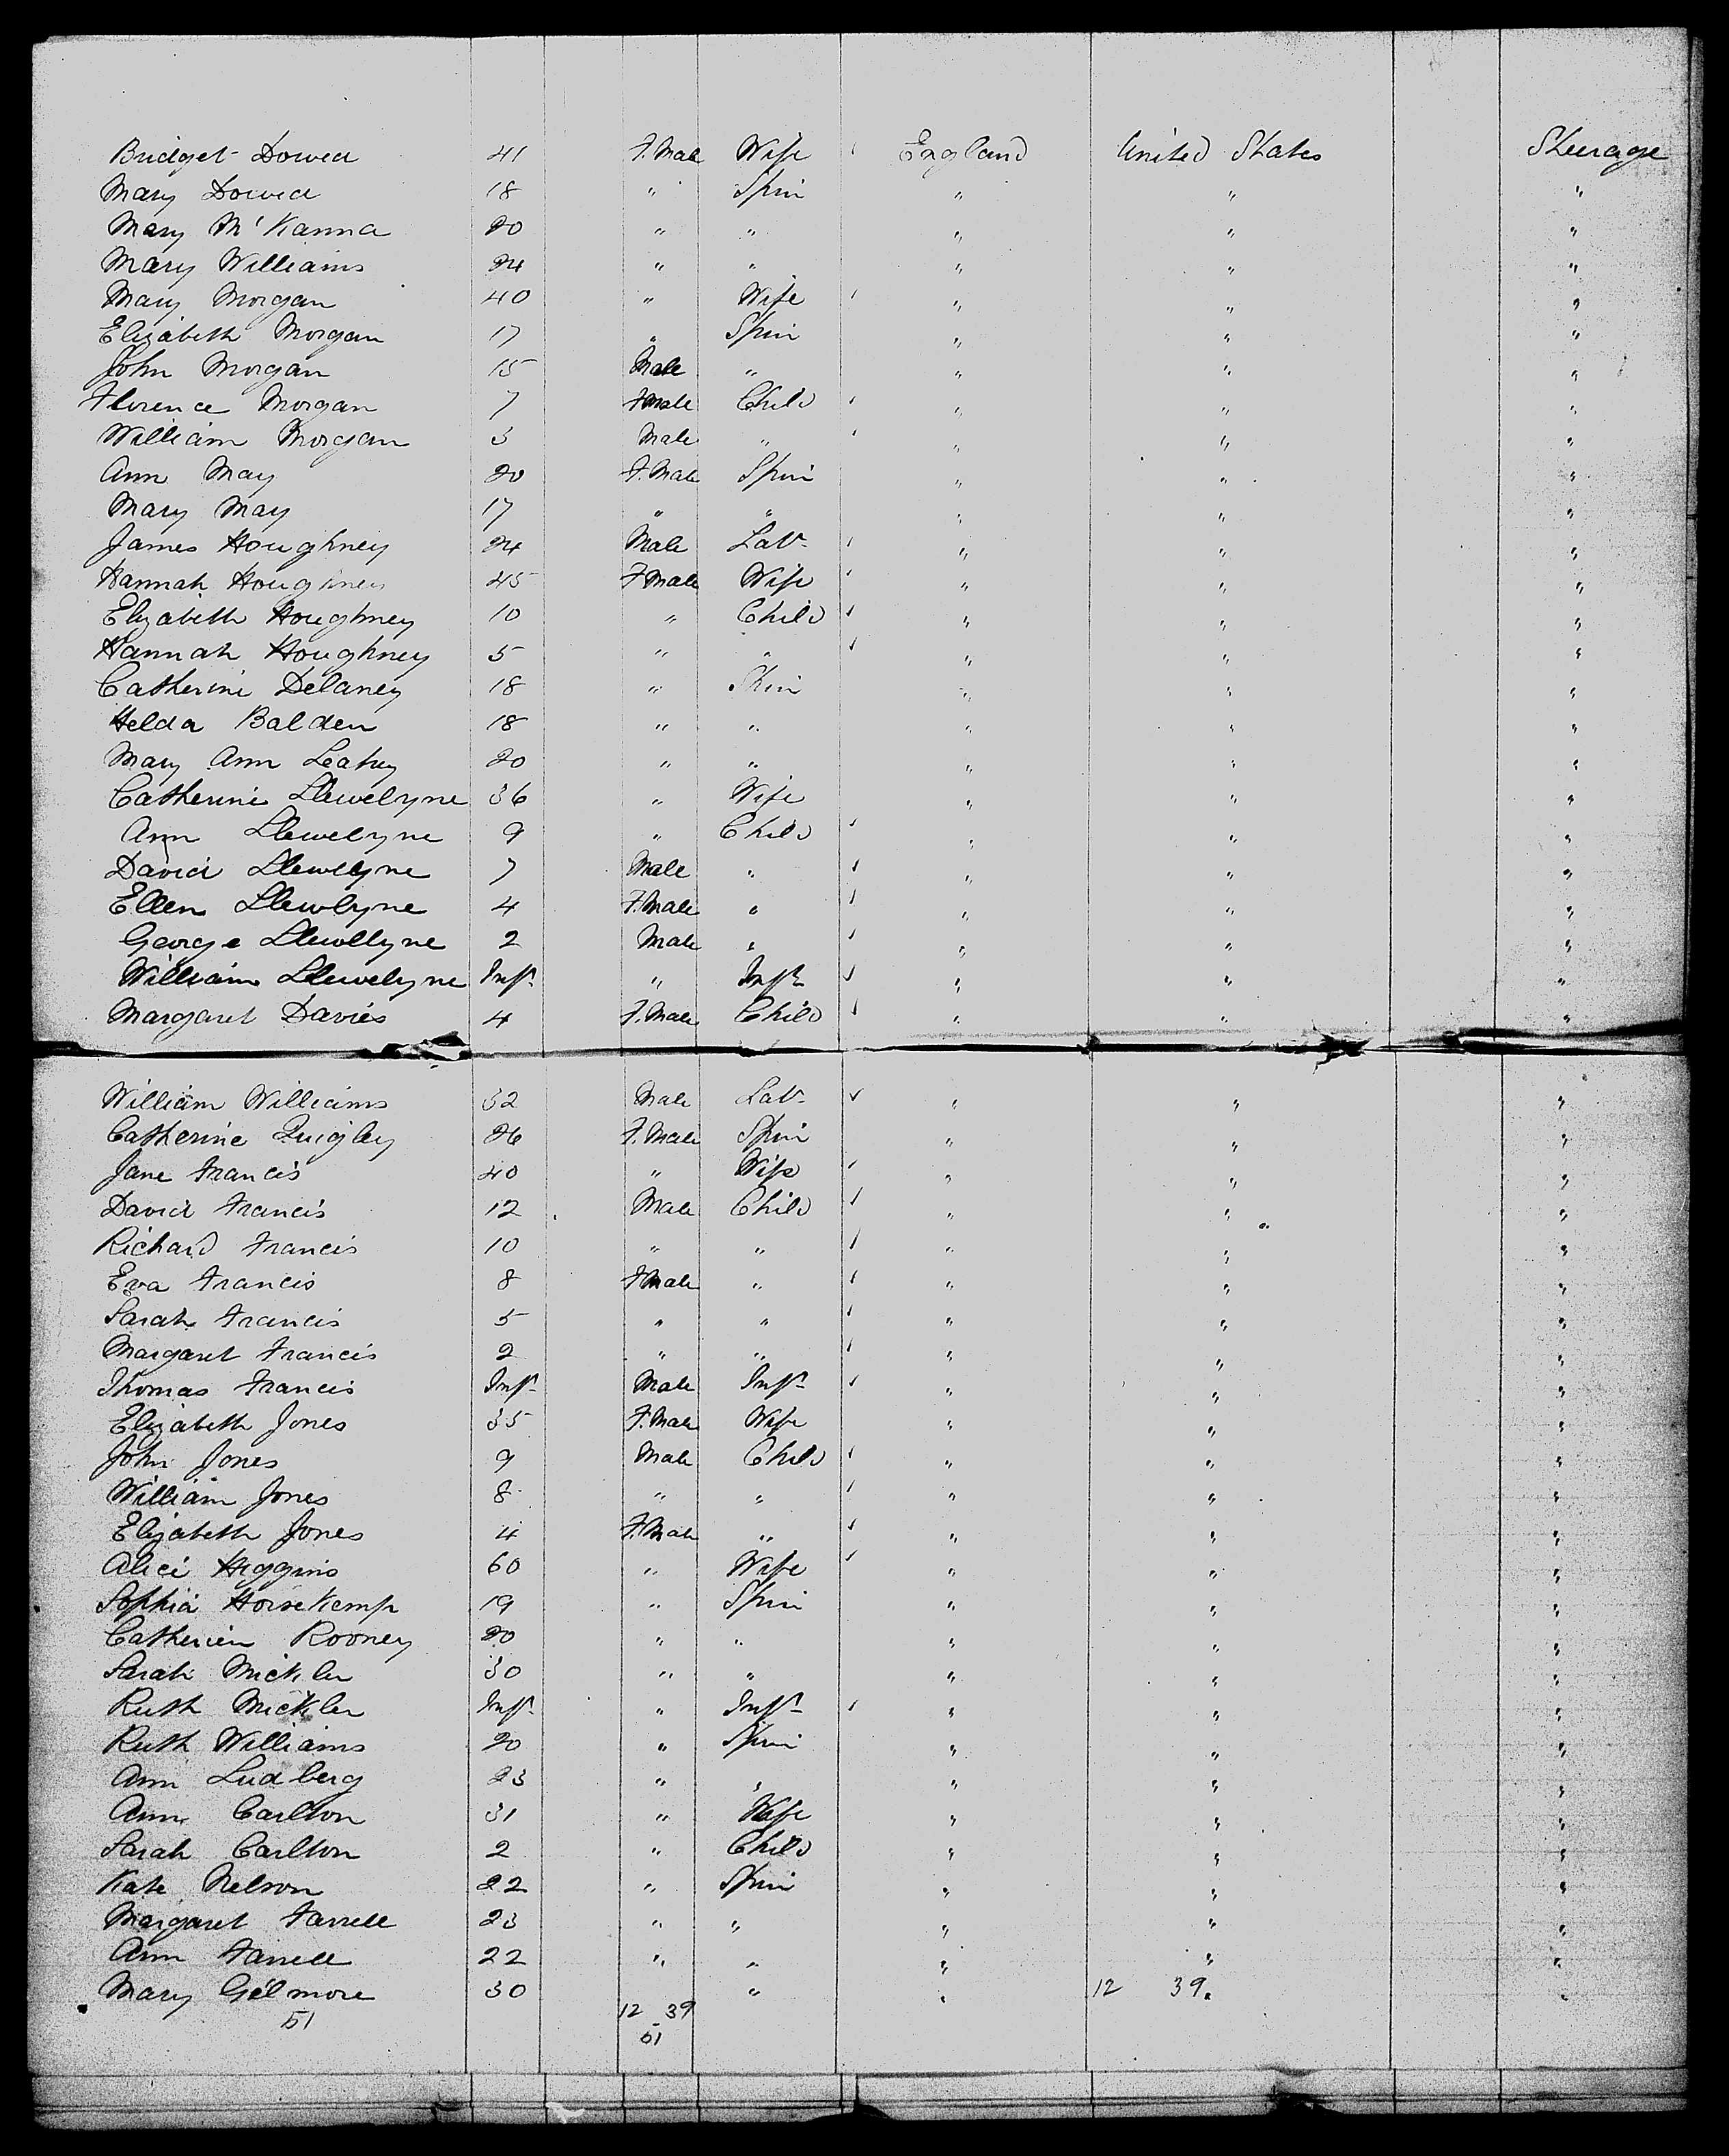 Bridget Dowd 41 F.Male Wife England United States Steerage
Mary Dowd 18 " Spin " " "
Mary M'Kanna 20 " " " " "
Mary Williams 24 " " " " "
Mary Morgan 40 " Wife " " "
Elizabeth Morgan 17 " Spin " " "
John Morgan 15 Male " " " "
Florence Morgan 7 FMale Child " " "
William Morgan 3 Male " " " "
Ann May 20 F.Male Spin " " "
Mary May 17 " " " " "
James Houghney 24 Male Lab. " " "
Hannah Houghney 45 FMale Wife " " "
Elizabeth Houghney 10 " Child " " "
Hannah Houghney 5 " " " " "
Catherine Delaney 18 " Spin " " "
Helda Balden 18 " " " " "
Mary Ann Leahy 20 " " " " "
Catherine Llewelyne 36 " Wife " " "
Ann Llewelyne 9 " Child " " "
David Llewelyne 7 Male " " " "
Ellen Llewlyne 4 F.Male " " " "
George Llewllyne 2 Male " " " "
William Llewelyne Inft " Inft " " "
Margaret Davies 4 F.Male Child " " "
William Williams 32 Male Lab. " " "
Catherine Quigley 26 F.Male Spin " " "
Jane Francis 40 " Wife " " "
David Francis 12 Male Child " " "
Richard Francis 10 " " " " "
Eva Francis 8 FMale " " " "
Sarah Francis 5 " " " " "
Margaret Francis 2 " " " " "
Thomas Francis Inft Male Inft " " "
Elizabeth Jones 35 F.Male Wife " " "
John Jones 9 Male Child " " "
William Jones 8 " " " " "
Elizabeth Jones 4 F.Male " " " "
Alice Higgins 60 " Wife " " "
Sophia Horsekemp 19 " Spin " " "
Catherien Rooney 20 " " " " "
Sarah Mickler 30 " " " " "
Ruth Mickler Inft " Inft " " "
Ruth Williams 20 " Spin " " "
Ann Ludberg 23 " " " " "
Ann Carlton 31 " Wife " " "
Sarah Carlton 2 " Child " " "
Kate Nelson 22 " Spin " " "
Margaret Farrell 23 " " " " "
Ann Farrell 22 " " " " "
Mary Gilmore 30 " " 12 39. "
51 12 39
51